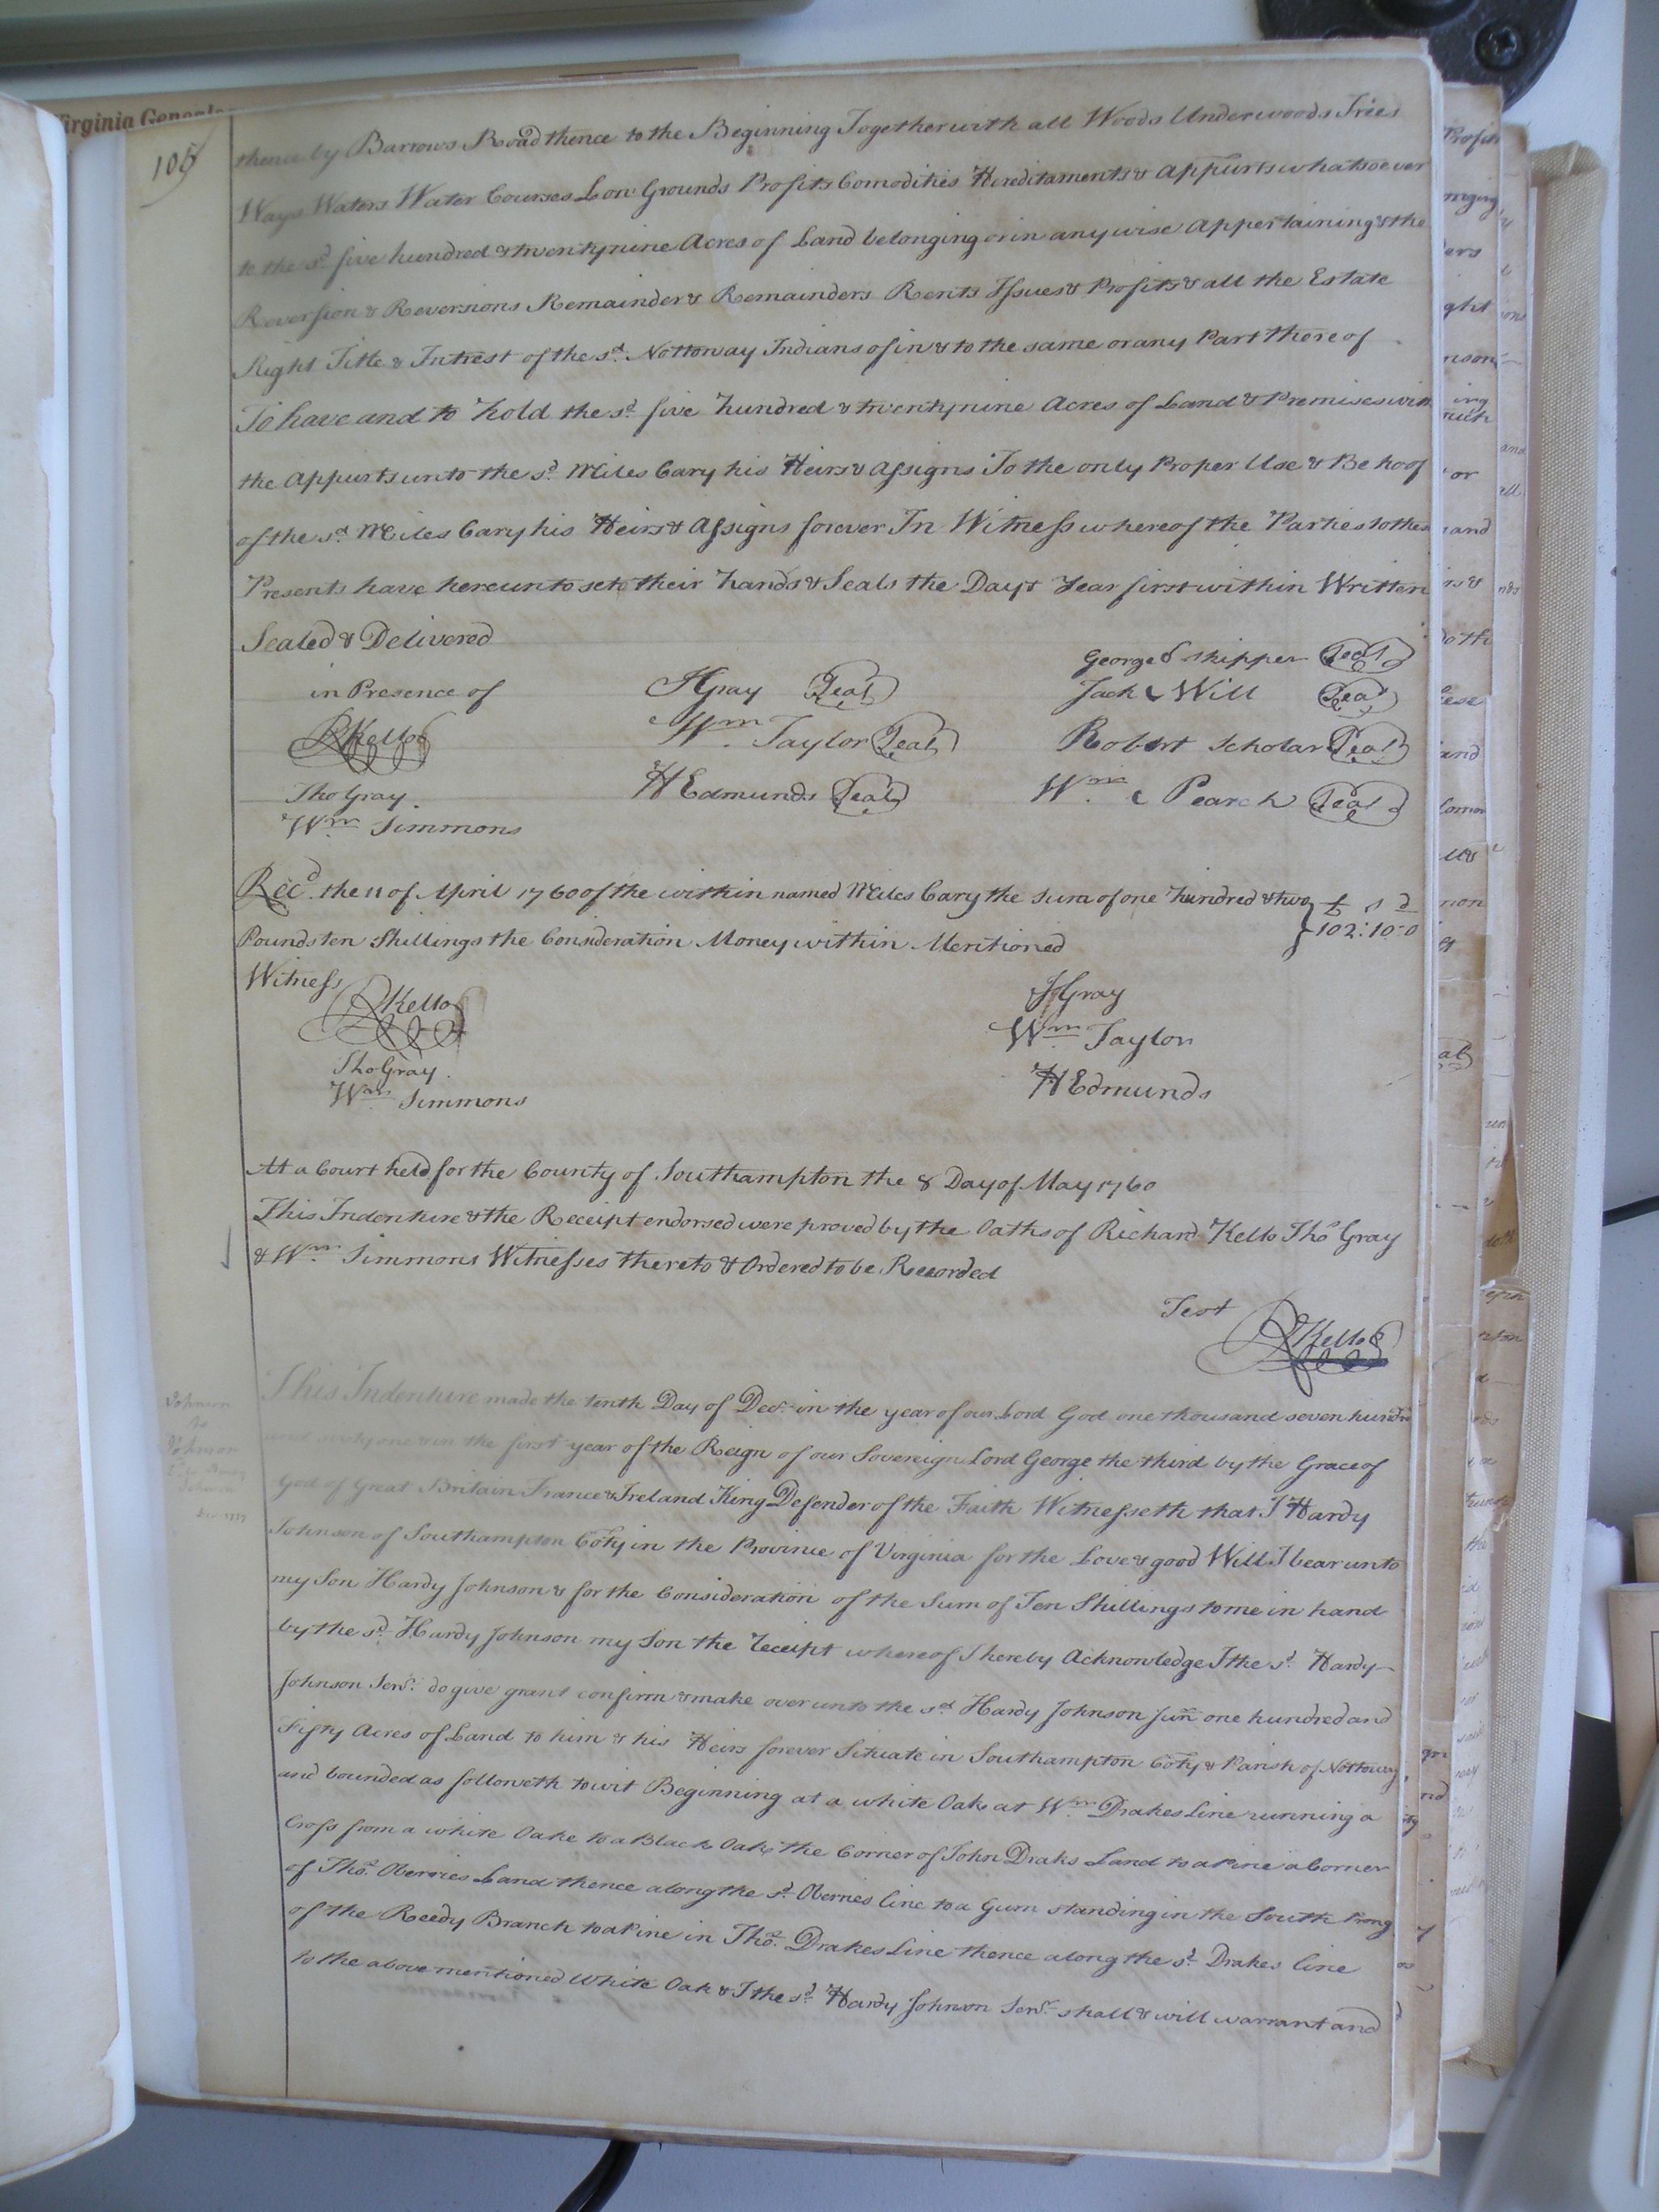 Virginia Genealo
105
thence by Barrows Road thence to the Beginning Together with all Woods Underwoods Trees
Ways Waters Water Courses Low Grounds Profits Comodities Hereditaments & Appurts whatsoever
to the sd. five hundred & twenty nine Acres of Land belonging or in any wise Appertaining & the
Reversion & Reversions Remainder & Remainders Rents Issues & Profits & all the Estate
Right Title & Intrest of the sd. Nottoway Indians of in & to the same or any Part there of
To have and to hold the sd. five hundred & twenty nine Acres of Land & Premises with
the Appurts unto the sd. Miles Cary his Heirs & Assigns To the only Proper Use & Be hoof
of the sd. Miles Cary his Heirs & Assigns forever In Witness whereof the Parties to these
Presents have hereunto sete their hands & Seals the Day & Year first within Written
Sealed & Delivered
in Presence of
RKello
Tho Gray.
Wm. Simmons
JGray Seal
Wm. Taylor Seal
HEdmunds Seal
George skipper Seal
Jack Will Seal
Robert Scholar Seal
Wm. Pearch Seal
Recd. the 11 of April 1760 of the within named Miles Cary the Sum of one hundred & two £ s d
Pounds ten Shillings the Consideration Money within Mentioned 102:10-0
Witness
RKello
Tho Gray.
Wm. Simmons
JGray
Wm. Taylor
HEdmunds
At a Court held for the County of Southampton the 8 Day of May 1760
This Indenture & the Receipt endorsed were proved by the Oaths of Richard Kello Tho Gray
& Wm. Simmons Witnesses thereto & Ordered to be Recorded
Test
RKello
Johnson
to
Johnson
This Indenture made the tenth Day of Decr. in the year of our Lord God one thousand seven hundred
and sixty one & in the first year of the Reign of our Sovereign Lord George the third by the Grace of
God of Great Britain France & Ireland King Defender of the Faith Witnesseth that I Hardy
Johnson of Southampton Coty in the Province of Virginia for the Love & good Will I bear unto
my Son Hardy Johnson & for the Consideration of the Sum of Ten Shillings to me in hand
by the sd. Hardy Johnson my Son the Receipt whereof I hereby Acknowledge I the sd. Hardy
Johnson Senr. do give grant confirm & make over unto the sd. Hardy Johnson Junr one hundred and
Fifty Acres of Land to him & his Heirs forever Situate in Southampton Coty & Parish of Nottoway
and bounded as followeth to wit Beginning at a white Oak at Wm. Drakes Line running a
Cross from a white Oake to a Black Oak, the Corner of John Draks Land to a Pine a Corner
of Tho. Land thence along the sd. line to a Gum standing in the South Prong
of the Reedy Branch to a Pine in Tho. Drakes Line thence along the sd. Drakes line
to the above mentioned White Oak & I the sd. Hardy Johnson Senr. shall & will warrant and